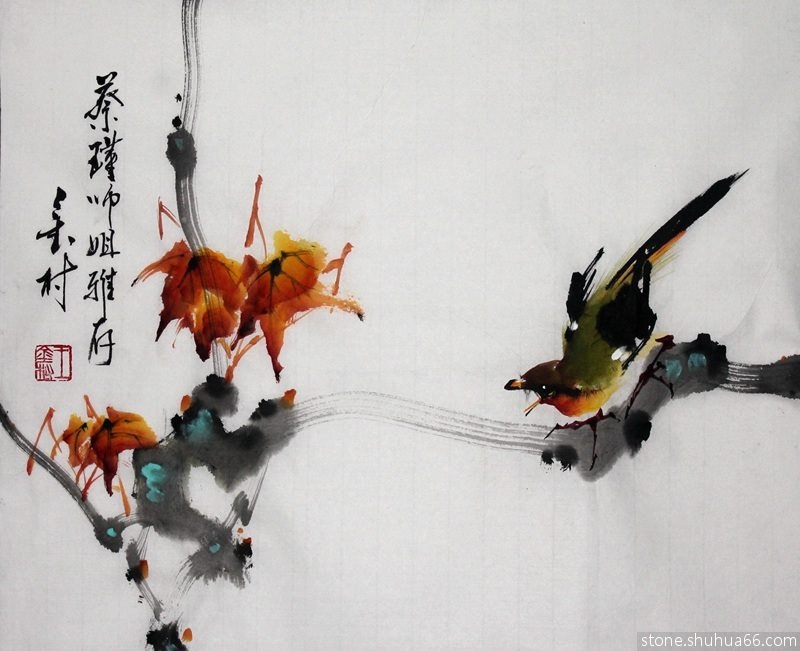 蔡瑾师姐雅存
金村
stone.shuhua66.com